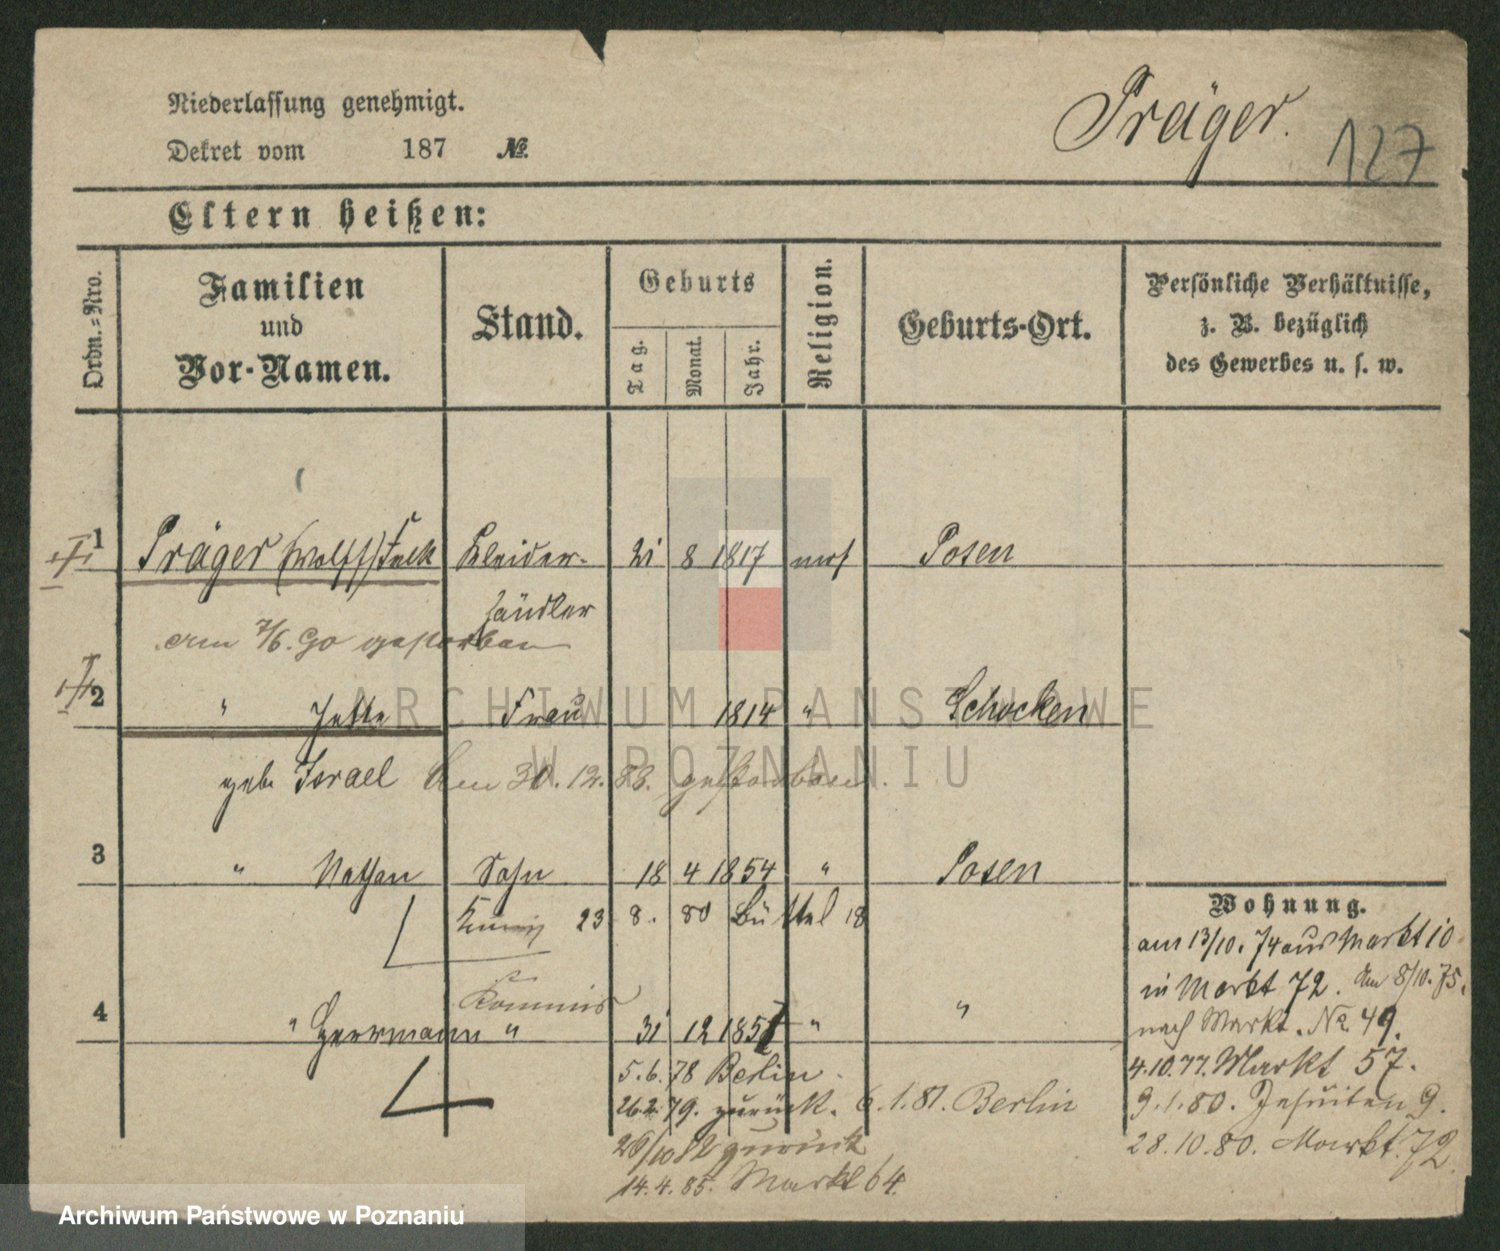 Niederlassung genehmigt.
Präger.
127
Dekret vom 187 №.
Eltern heißen:
Ordn.-Nro.
Familien
und
Vor-Namen.
Stand.
Geburts
Tag.
Monat.
Jahr.
Religion.
Geburts-Ort.
Persönliche Verhältnisse,
z. B. bezüglich
des Gewerbes u. s. w.
1 Präger (Wolff) Falk Kleider- 21 8 1817 mos Posen
händler
am 7/6. 90 gestorben
2 " Jette Frau 1814 " Schocken
geb. Israel Am 30. 12. 88. gestorben.
3 " Nathan Sohn 18 4 1854 " Posen
23 8. 80 Büttel 18
4 Kommis
" Herrmann " 31 12 1857 " "
5. 6. 78 Berlin
26.2. 79. zurück. 6. 1. 81. Berlin
26/10 82 zurück
14. 4. 85. Markt 64.
Wohnung.
am 13/10. 74 aus Markt 10
in Markt 72. Am 8/10. 75.
nach Markt. No. 49.
4.10.77. Markt 57.
9.1.80. Jesuiten 9.
28.10.80. Markt. 72.
ARCHIWUM PAŃSTWOWE
W POZNANIU
Archiwum Państwowe w Poznaniu